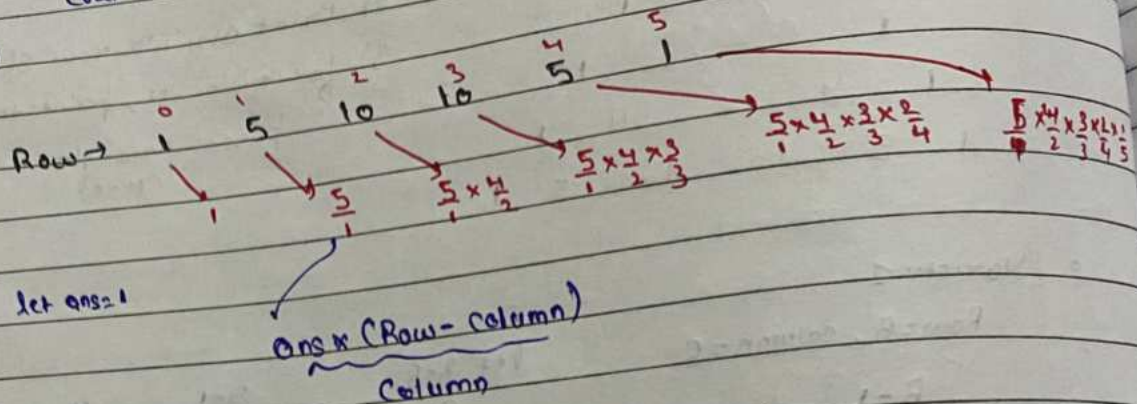 0 1 2 3 4 5
Row → 1 5 10 10 5 1
1 5/1 5/1 × 4/2 5/1 × 4/2 × 3/3 5/1 × 4/2 × 3/3 × 2/4 5/1 × 4/2 × 3/3 × 2/4 × 1/5
let ans=1
ans × (Row - Column)
Column